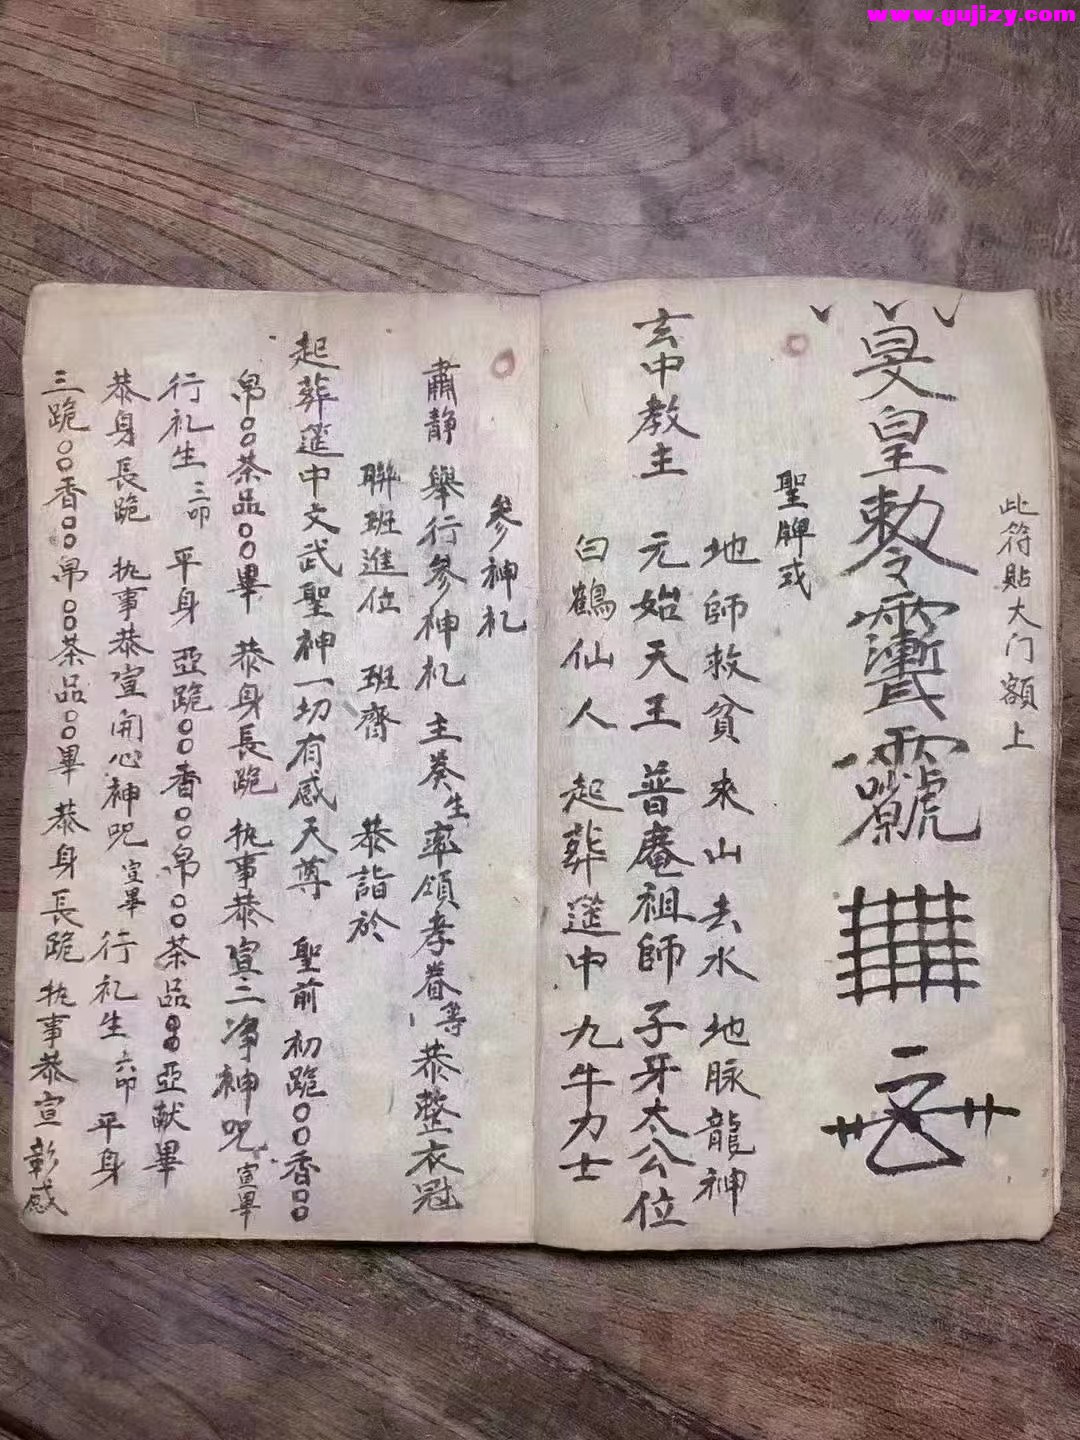 www.gujizy.com
此符貼大门額上
皇敕令
聖牌式
地師救貧 來山去水 地脉龍神
玄中教主 元始天王 普庵祖師 子牙太公位
白鶴仙人 起葬筵中 九牛力士
參神礼
肅静 舉行參神礼 主葵生率領孝眷等恭整衣冠
聯班進位 班齊 恭詣於
起葬筵中文武聖神一切有感天尊 聖前 初跪〇〇香〇〇
帛〇〇茶品〇〇畢 恭身長跪 执事恭宣三净神咒 宣畢
行礼生 三叩 平身 亞跪〇〇香〇〇帛〇〇茶品〇〇亞献畢
恭身長跪 执事恭宣開心神咒 宣畢 行礼生 六叩 平身
三跪〇〇香〇〇帛〇〇茶品〇〇畢 恭身長跪 执事恭宣彰感